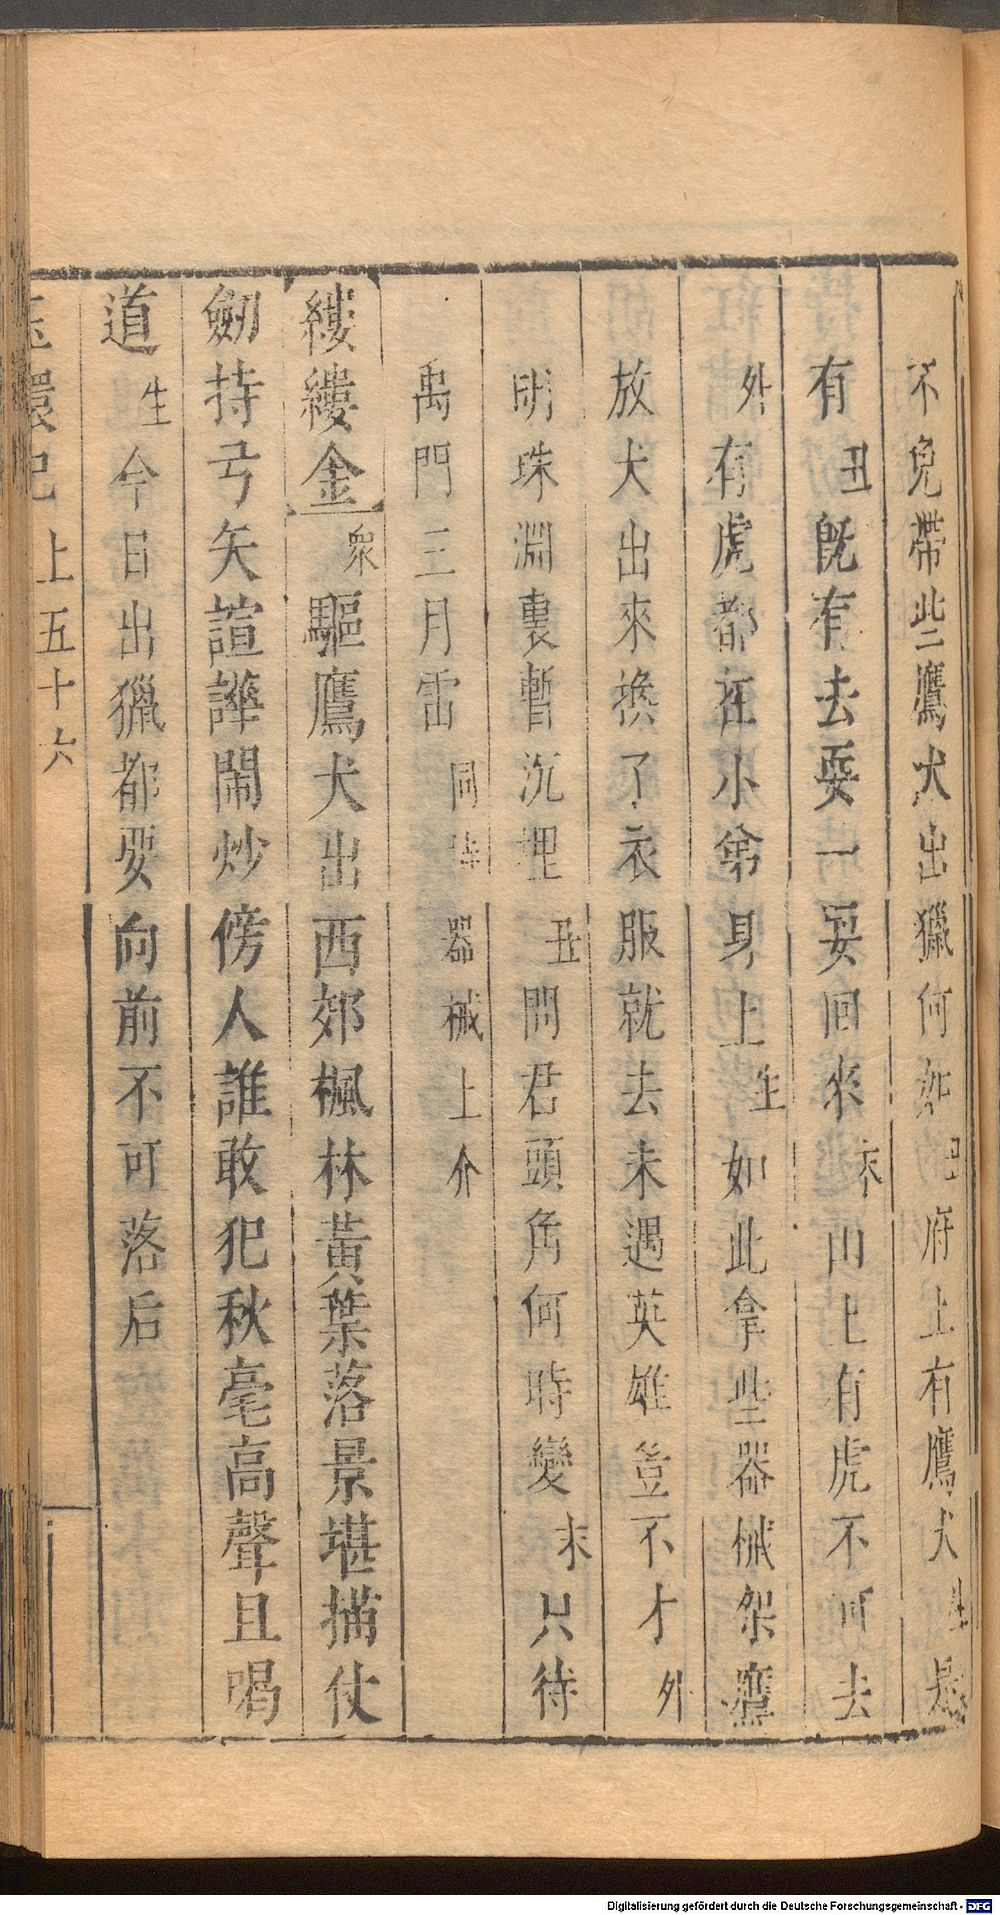 不免帶些鷹犬出獵何如丑府上有鷹犬生是
有丑旣有去耍一耍回來末山上有虎不可去
外有虎都在小弟身上生如此拿些器械架鷹
放犬出來換了衣服就去未遇英雄豈不才外
明珠淵裏暫沉埋丑問君頭角何時變末只待
禹門三月雷同 器械上介
縷縷金衆驅鷹犬出西郊楓林黃葉落景堪描仗
劒持弓矢諠譁閙炒傍人誰敢犯秋毫高聲且喝
道生今日出獵都要向前不可落后
玉環記 上五十六
Digitalisierung gefördert durch die Deutsche Forschungsgemeinschaft - DFG